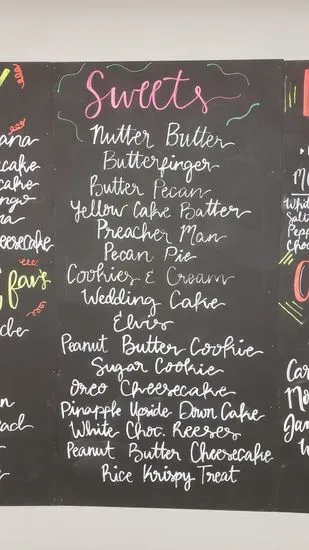 Sweets
Nutter Butter
Butterfinger
Butter Pecan
Yellow Cake Batter
Preacher Man
Pecan Pie
Cookies & Cream
Wedding Cake
Elvis
Peanut Butter Cookie
Sugar Cookie
Oreo Cheesecake
Pineapple Upside Down Cake
White Choc. Reeses
Peanut Butter Cheesecake
Rice Krispy Treat